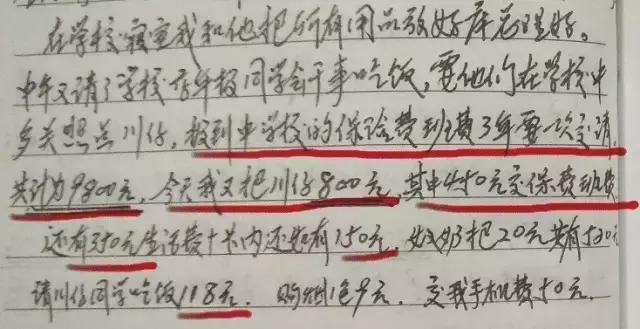 在学校寝室我和他把所有用品放好床也铺好。
中午又请了学校高年级同学会干事吃饭,要他们在学校中
多关照点川仔,报到中学校的保险费班费3年要一次交清
共计为9800元,今天我又把川仔800元,其中450元交保费班费
还有350元生活费卡内还如有150元,奶把20元共有520
请川仔同学吃饭118元. 购烟1包9元. 交我手机费50元.